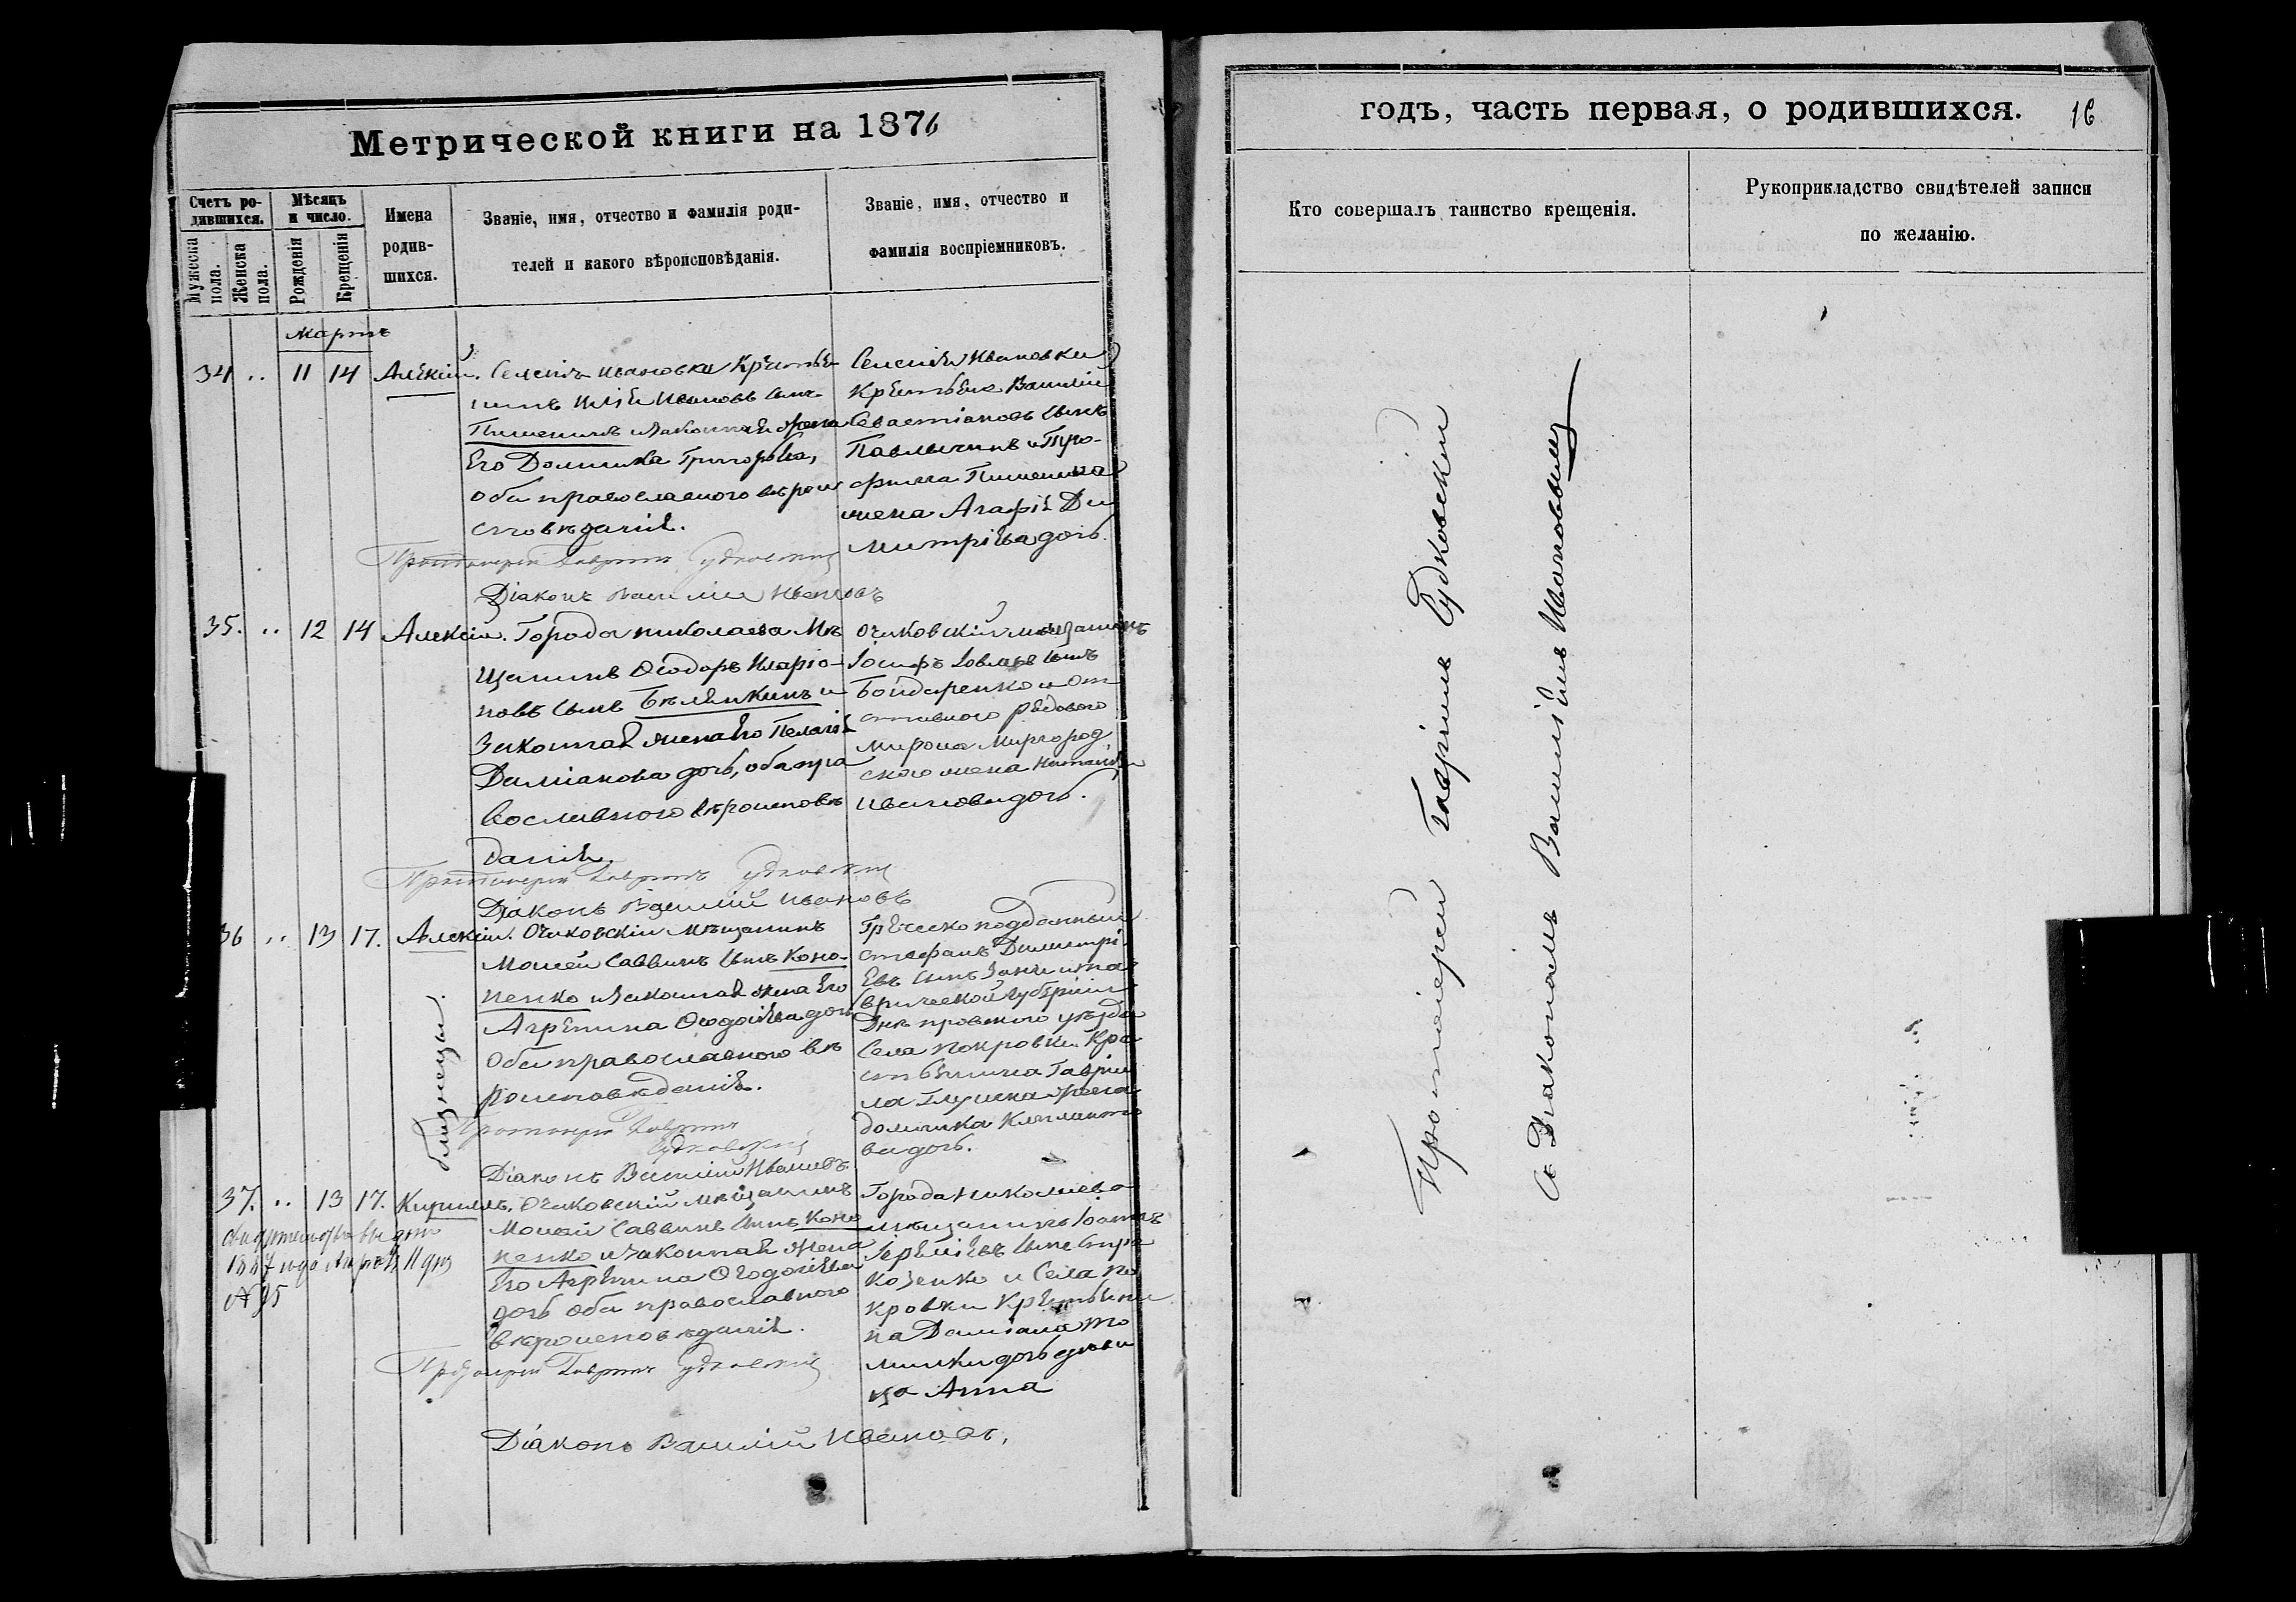 Метрической книги на 1876
Счетъ ро-
дившихся.
Мужеска
пола.
Женска
пола.
Мѣсяцъ
и число.
Рожденія
Крещенія
Имена
родив-
шихся.
Званіе, имя, отчество и фамилія роди-
телей и какого вѣроисповѣданія.
Званіе, имя, отчество и
фамилія воспріемниковъ.
Мартъ
34 .. 11 14 Алексій.
Селенія Ивановки Крестья
нинъ Илія Ивановъ сынъ
Пишенинъ и законная жена
Его Домникія Григорьева,
оба православнаго вѣрои
сповѣданія.
Протоіерей Гавріилъ Судковскій
Діаконъ Василій Ивановъ
Селенія Ивановки
Крестьяне Василій
Севастіановъ сынъ
Павлычинъ и Тро-
фима Пишенина
жена Агафія Ди
митріева дочь.
35. .. 12 14 Алексій.
Города Николаева Мѣ
щанинъ Ѳеодоръ Иларіо-
новъ сынъ Бѣлянкинъ и
Законная жена его Пелагія
Даміанова дочь, оба пра
вославнаго вѣроисповѣ
данія.
Протоіерей Гавріилъ Судковскій
Діаконъ Василій Ивановъ
Очаковскій мѣщанинъ
Іосифъ Іовлевъ сынъ
Бондаренко и от
ставного рядового
Мирона Миргород
ского жена Наталія
Иванова дочь.
36 .. 13 17. Алексій.
близнецы.
Очаковскій Мѣщанинъ
Моисей Саввинъ сынъ Коно-
ненко и законная жена Его
Агрепина Ѳеодосіева дочь
Оба православнаго вѣ
роисповѣданія.
Протоіерей Гавріилъ
Судковскій
Діаконъ Василій Ивановъ
Греческо подданный
Стефанъ Димитрі
Евъ сынъ и Та
врической губерніи
Днѣпровского уѣзда
Села Покровки Кре
стьянина Гаврии
ла Глущка жена
Домникія
ва дочь.
37. .. 13 17. Кириллъ.
Очаковскій мѣщанинъ
Моисей Саввинъ сынъ Коно
ненко и законная жена
Его Агрепина Ѳеодосіева
дочь оба православнаго
вѣроисповѣданія.
Протоіерей Гавріилъ Судковскій
Діаконъ Василій Ивановъ.
Города Николаева
мѣщанинъ Іоаннъ
Іереміевъ сынъ Стра
козенко и Села По
кровки Крестьяни
на Даміана То
дочь дѣви
ца Анна
свидѣтельство выдано
1887 года Апрѣля 11 дня
№ 95
годъ, часть первая, о родившихся. 16
Кто совершалъ таинство крещенія.
Рукоприкладство свидѣтелей записи
по желанію.
Протоіерей Гавріилъ Судковскій
съ Діакономъ Василіемъ Ивановымъ